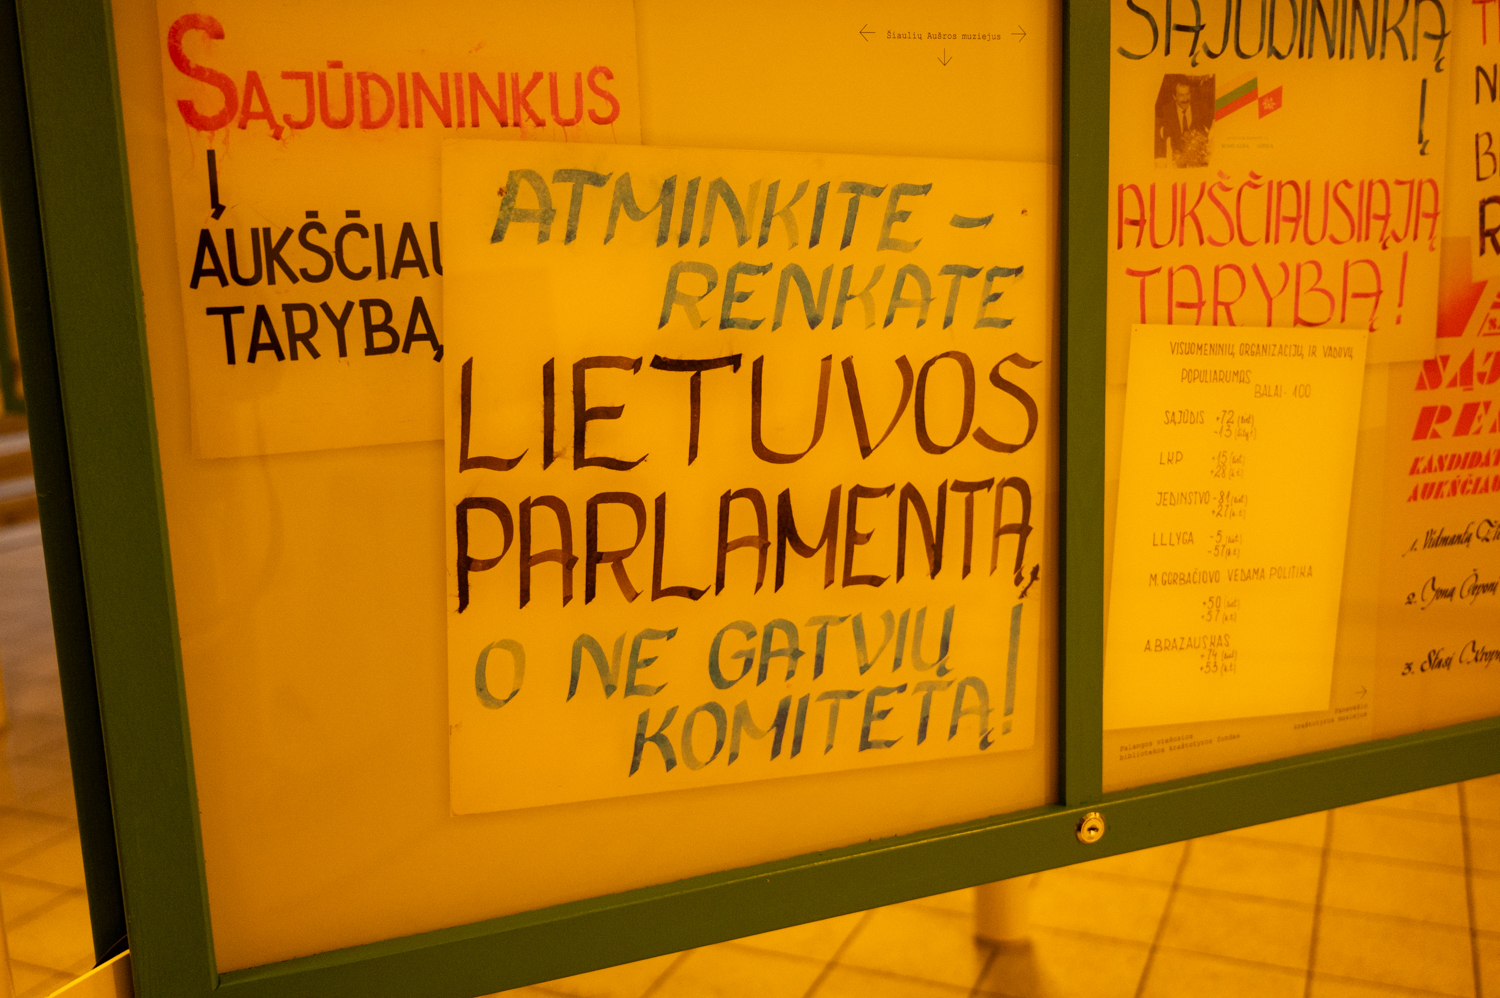 SĄJŪDININKUS
Į
AUKŠČIAU
TARYBĄ,
← Šiaulių Aušros muziejus →
↓
ATMINKITE –
RENKATE
LIETUVOS
PARLAMENTĄ,
O NE GATVIŲ
KOMITETĄ!
SĄJŪDININKĄ
Į
AUKŠČIAUSIĄJĄ
TARYBĄ!
VISUOMENINIŲ ORGANIZACIJŲ IR VADOVŲ
POPULIARUMAS
BALAI - 100
SĄJŪDIS +72
-13
LKP +15
+28
JEDINSTVO -81
+27
L.L.LYGA -5
-57
M. GORBAČIOVO VEDAMA POLITIKA
+50
+57
A. BRAZAUSKAS
+74
+53
Palangos viešosios
bibliotekos kraštotyros fondas
→
Pasvalio
kraštotyros muziejus
SĄJ
KANDIDAT
AUKŠČIAU
1. Vidmantą
2. Joną Čepon
3. Stasį Krop